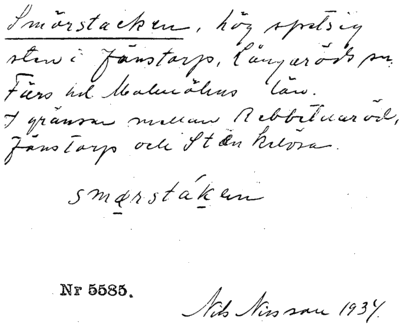 Smörstacken, hög spetsig
sten i Jönstorp, Långaröds sn.
Färs hd Malmöhus län.
I gränsen mellan Rebbetuaröd,
Jönstorp och Stenkilösa.
smærstáken
Nr 5585.
Nils Nilsson 1934.